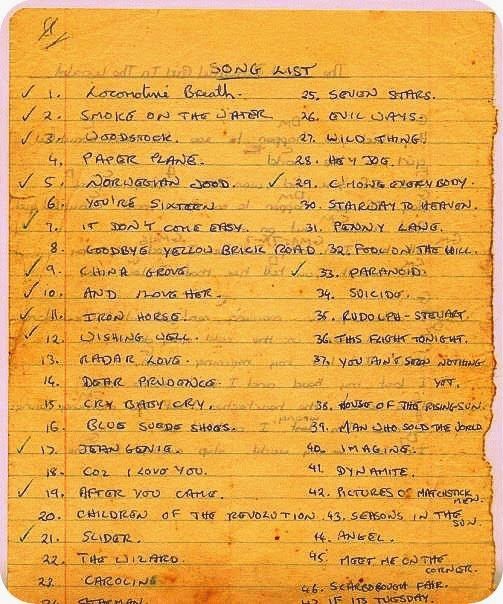 SONG LIST
✓ 1. Locomotive Breath.
✓ 2. SMOKE ON THE WATER
✓ 3. WOODSTOCK.
4. PAPER PLANE.
✓ 5. NORWEGIAN WOOD.
6. YOU'RE SIXTEEN
✓ 7. IT DON'T COME EASY.
8. GOODBYE YELLOW BRICK ROAD.
✓ 9. CHINA GROVE
✓ 10. AND I LOVE HER.
✓ 11. IRON HORSE.
✓ 12. WISHING WELL.
13. RADAR LOVE.
14. DEAR PRUDENCE.
15. CRY BABY CRY.
16. BLUE SUEDE SHOES.
✓ 17. JEAN GENIE.
18. COZ I LOVE YOU.
✓ 19. AFTER YOU CAME.
20. CHILDREN OF THE REVOLUTION.
✓ 21. SLIDER.
22. THE WIZARD.
23. CAROLINE
24. STARMAN
25. SEVEN STARS.
26. EVIL WAYS.
27. WILD THING.
28. HEY JOE.
✓ 29. C'MON EVERYBODY.
30. STAIRWAY TO HEAVEN.
31. PENNY LANE.
32. FOOL ON THE HILL.
✓ 33. PARANOID.
34. SUICIDE.
35. RUDOLPH - STEWART.
36. THIS FLIGHT TONIGHT.
37. YOU AIN'T SEEN NOTHING
YET.
38. HOUSE OF THE RISING SUN.
39. MAN WHO SOLD THE WORLD
40. IMAGINE.
41. DYNAMITE.
42. PICTURES OF MATCHSTICK
MEN.
43. SEASONS IN THE
SUN.
44. ANGEL.
45. MEET ME ON THE
CORNER.
46. SCARBOROUGH FAIR.
47. IF ITS TUESDAY.